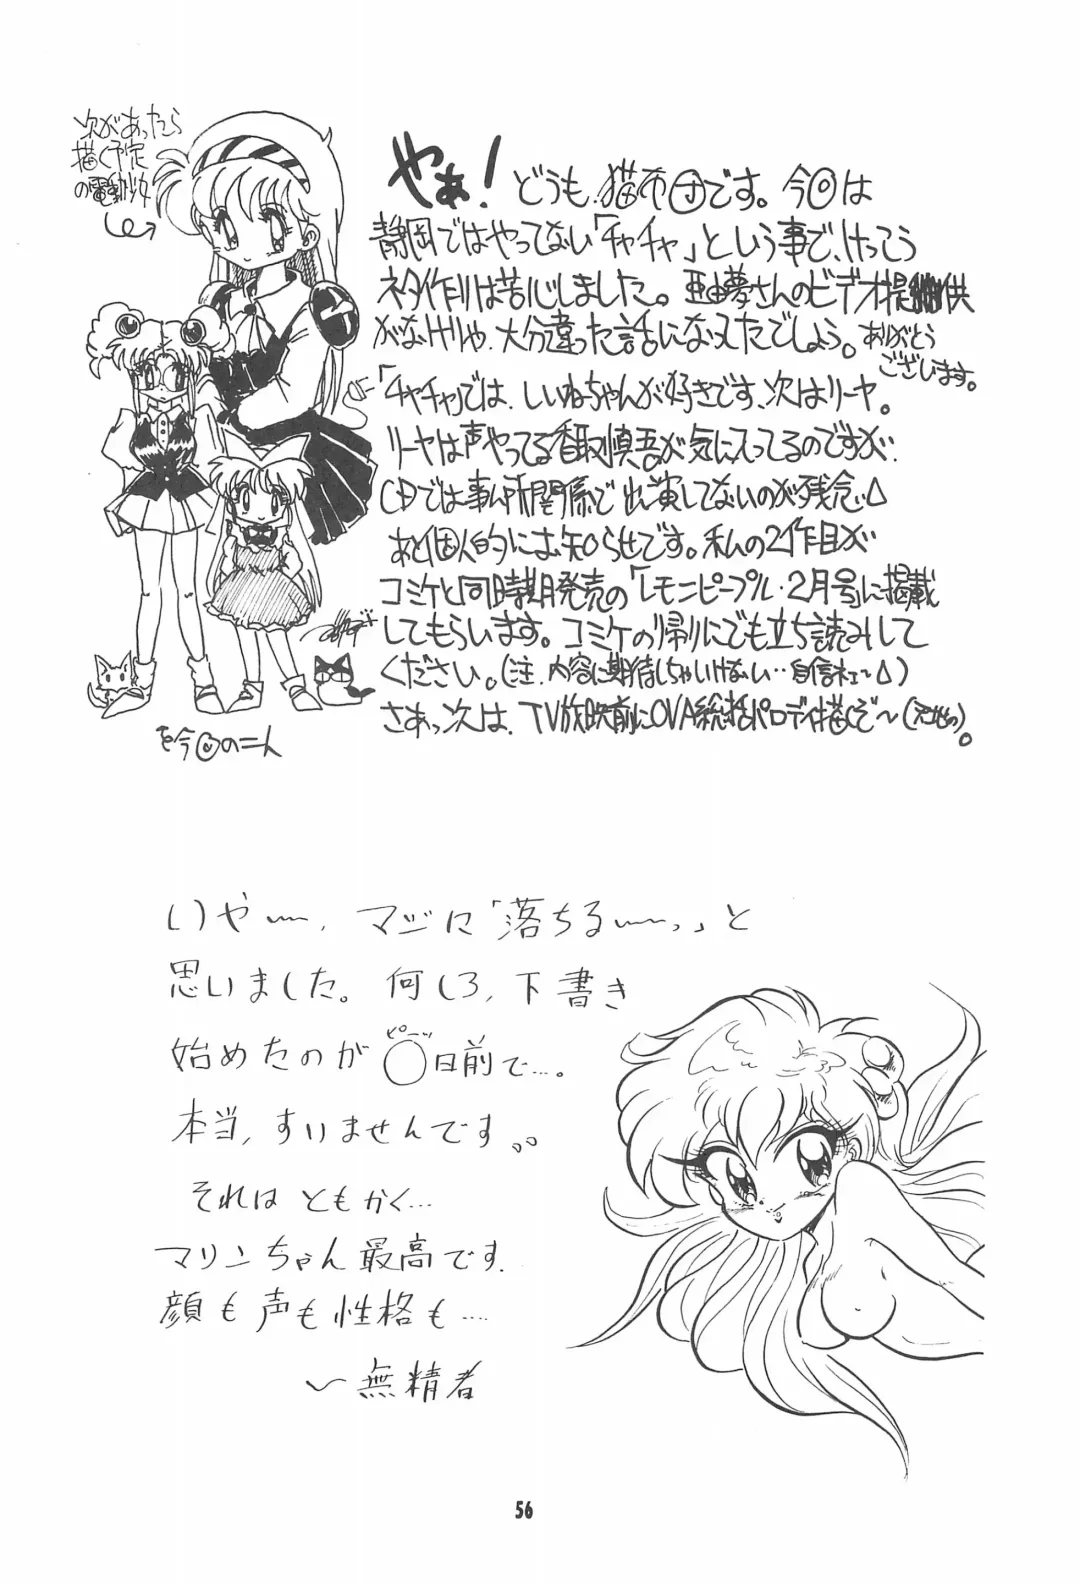 次があったら
描く予定
の電動少女
やぁ! どうも、猫布団です。今回は
静岡ではやってない「チャチャ」という事で、けっこう
ネタ作りは苦心しました。亜由夢さんのビデオ提供
がなけりゃ、大分違った話になってたでしょう。ありがとう
ございます。
「チャチャ」では、しいねちゃんが好きです、次はリーヤ。
リーヤは声やってる香取慎吾が気に入ってるのですが、
CDでは事ム所関係で出演してないのが残念。
あと個人的にお知らせです。私の2作目が
コミケと同時期発売の「レモンピープル・2月号」に掲載
してもらいます。コミケの帰りにでも立ち読みして
ください。(注.内容に期待しちゃいけない‥自信ネェ〜)
さあっ次は、TV放映前にOVA総括パロディ描くぞ〜(天地の)。
今回の二人
いや〜、マジに「落ちる〜っ」と
思いました。何しろ、下書き
始めたのが○日前で…。
ピーッ
本当、すいませんです。。
それは ともかく…
マリンちゃん最高です.
顔も声も性格も….
〜無精者
56